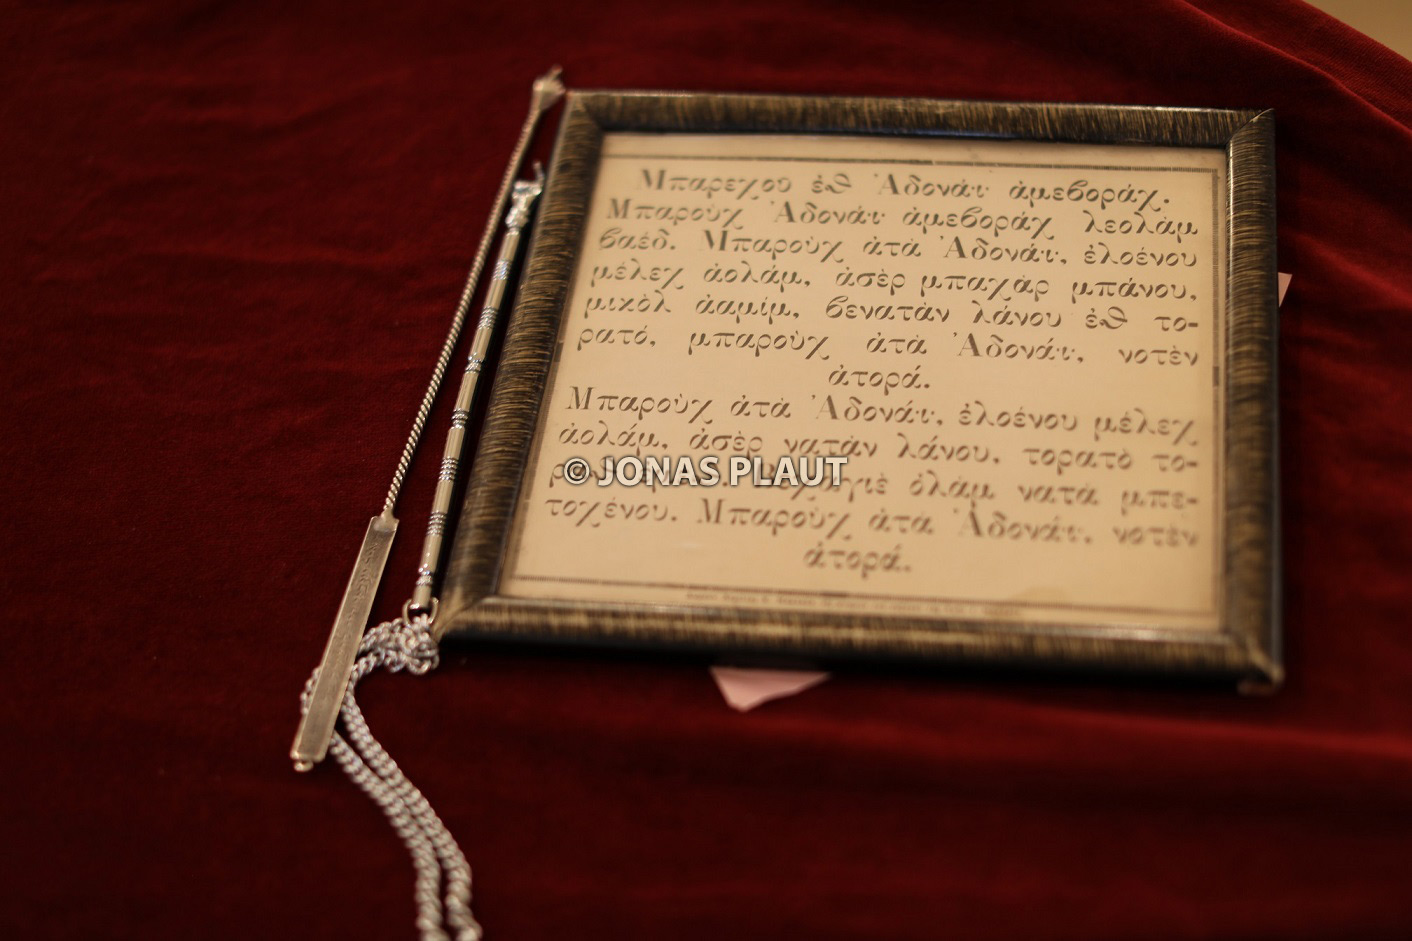 Μπαρεχοῦ ἐϑ Ἀδονάϊ ἀμεβοράχ.
Μπαροὺχ Ἀδονάϊ ἀμεβοράχ λεολὰμ
βαέδ. Μπαροὺχ ἀτὰ Ἀδονάϊ, ἐλοένου
μέλεχ ἀολάμ, ἀσὲρ μπαχὰρ μπάνου,
μικὸλ ἀαμίμ, βενατὰν λάνου ἐϑ το-
ρατό, μπαροὺχ ἀτὰ Ἀδονάϊ, νοτὲν
ἀτορά.
Μπαροὺχ ἀτὰ Ἀδονάϊ, ἐλοένου μέλεχ
ἀολάμ, ἀσὲρ νατὰν λάνου, τορατὸ το-
© JONAS PLAUT
ὀλὰμ νατὰ μπε-
τοχένου. Μπαροὺχ ἀτὰ Ἀδονάϊ, νοτὲν
ἀτορά.